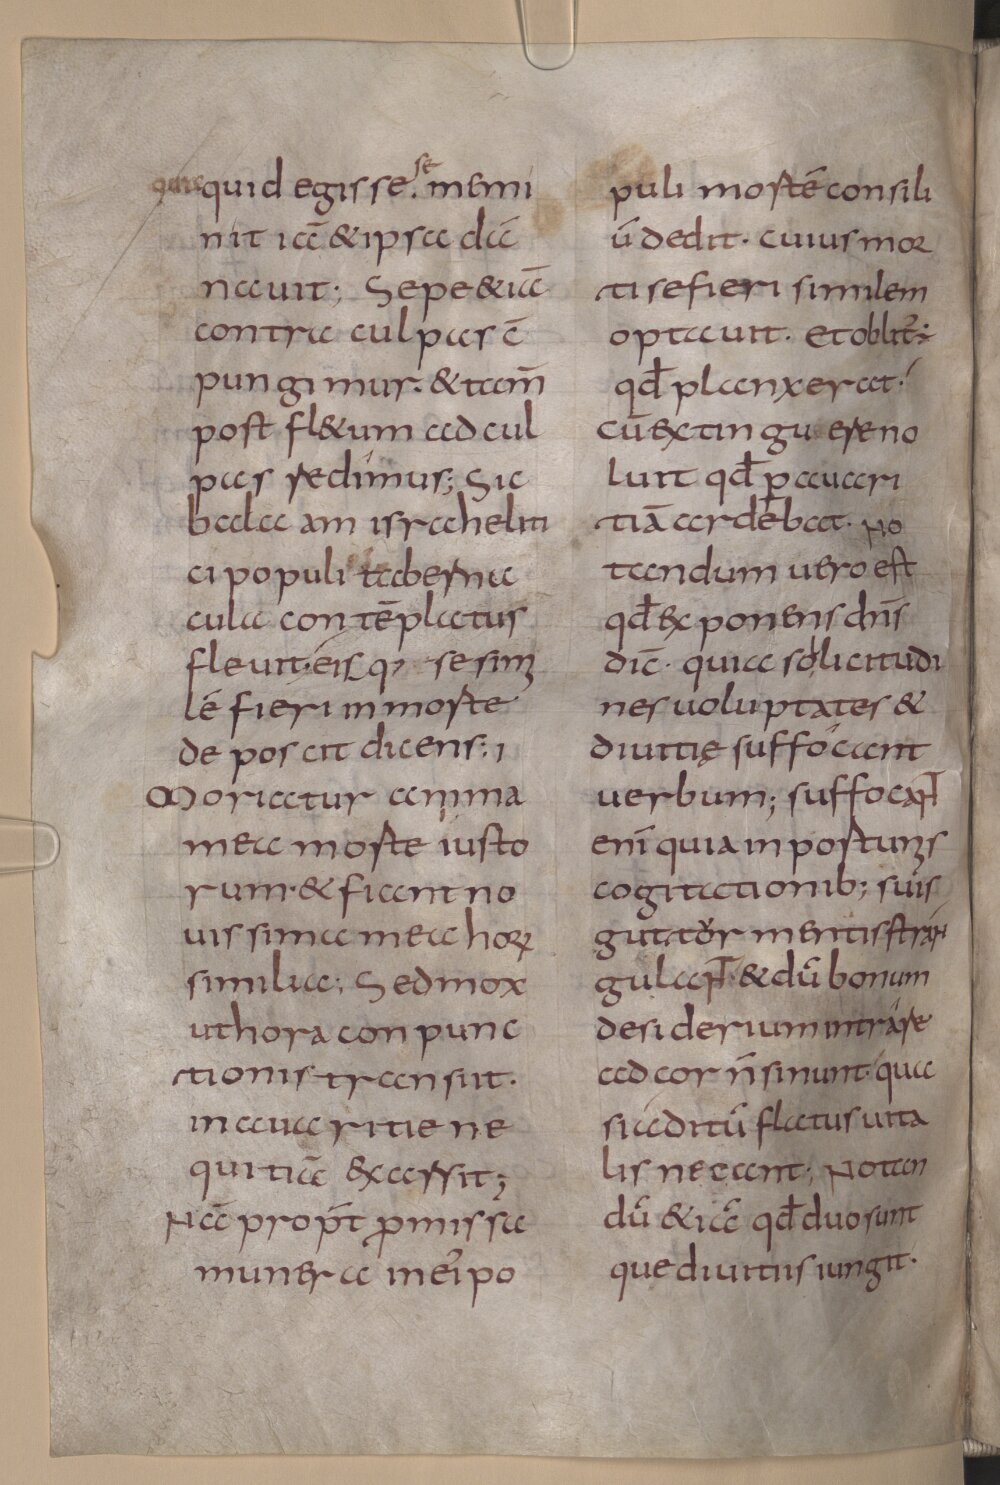 quid egisse. sē memi
nit iā & ipsa dā
nauit; Sepe & iā
contra culpas cō
pungimur. & tam̄
post fl&um ad cul
pas redimus; Sic
balaam israheliti
ci populi taberna
cula contēplatus
fleuit. eisq; se sim
lē fieri in morte
deposcit dicens:
Moriatur anima
mea morte iusto
rum. & fiant no
uissima mea horꝝ
similia; Sed mox
ut hora conpunc
tionis transiit.
in auaritie ne
quitiā exarssit;
Nā propt̄ promissa
munera in ei' po
puli mortē consili
ū dedit. cuius mor
ti se fieri similem
optauit. Et oblit'ē
qđ planxerat.
cū extinguere no
luit qđ p auari
tiā ardebat. No
tandum uero est
qđ exponens dn̄s
dic̄. quia sollicitudi
nes uoluptates &
diuitię suffocant
uerbum; suffocaꞃ̄
enī quia inportunis
cogitationib; suis
guttur mentis stran
gulaꞃ̄. & dū bonum
desiderium intrare
ad cor n̄ sinunt. qua
si aditū flatus uita
lis necant; Notan
dū & iā qđ duo sunt
que diuitiis iungit.